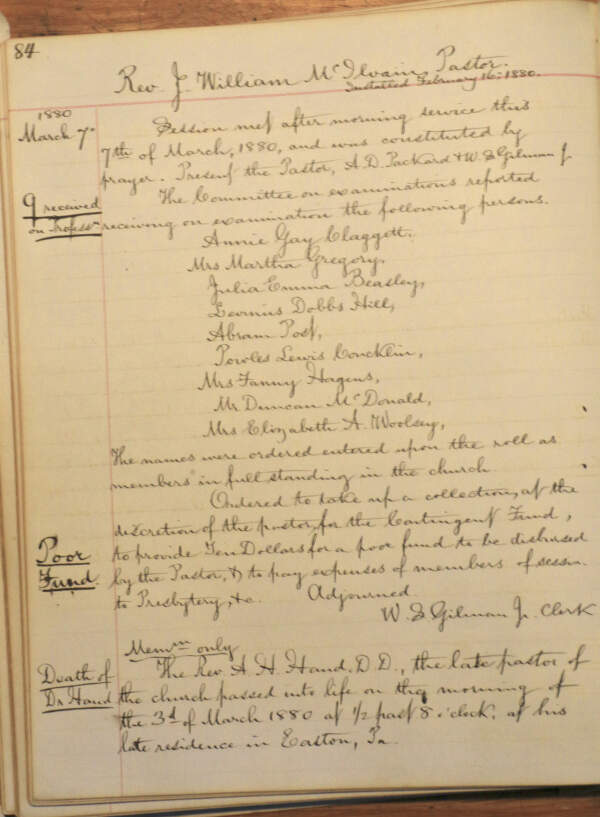 84
Rev. J. William McIlvain, Pastor.
Installed February 16th 1880.
1880
March 7th
Session met after morning service this
7th of March, 1880, and was constituted by
prayer. Present the Pastor, A.D. Packard & W.S. Gilman Jr
The Committee on examinations reported
9 received
on Profess.n
receiving on examination the following persons.
Annie Gay Claggett,
Mrs Martha Gregory,
Julia Emma Beasley,
Levinus Dobbs Hill,
Abram Post,
Powles Lewis Concklin,
Mrs Fanny Hagens,
Mr Duncan McDonald,
Mrs Elizabeth A. Woolsey,
The names were ordered entered upon the roll as
members in full standing in the church
Ordered to take up a collection, at the
discretion of the pastor, for the Contingent Fund,
Poor
Fund
to provide Ten Dollars for a poor fund to be disbursed
by the Pastor, & to pay expenses of members of session
to Presbytery, &c. Adjourned.
W.S. Gilman Jr. Clerk
Mem.m only
Death of
Dr Hand
The Rev. A. H. Hand. D.D., the late pastor of
the church passed into life on the morning of
the 3d of March 1880 at 1/2 past 8 o'clock, at his
late residence in Easton, Pa.